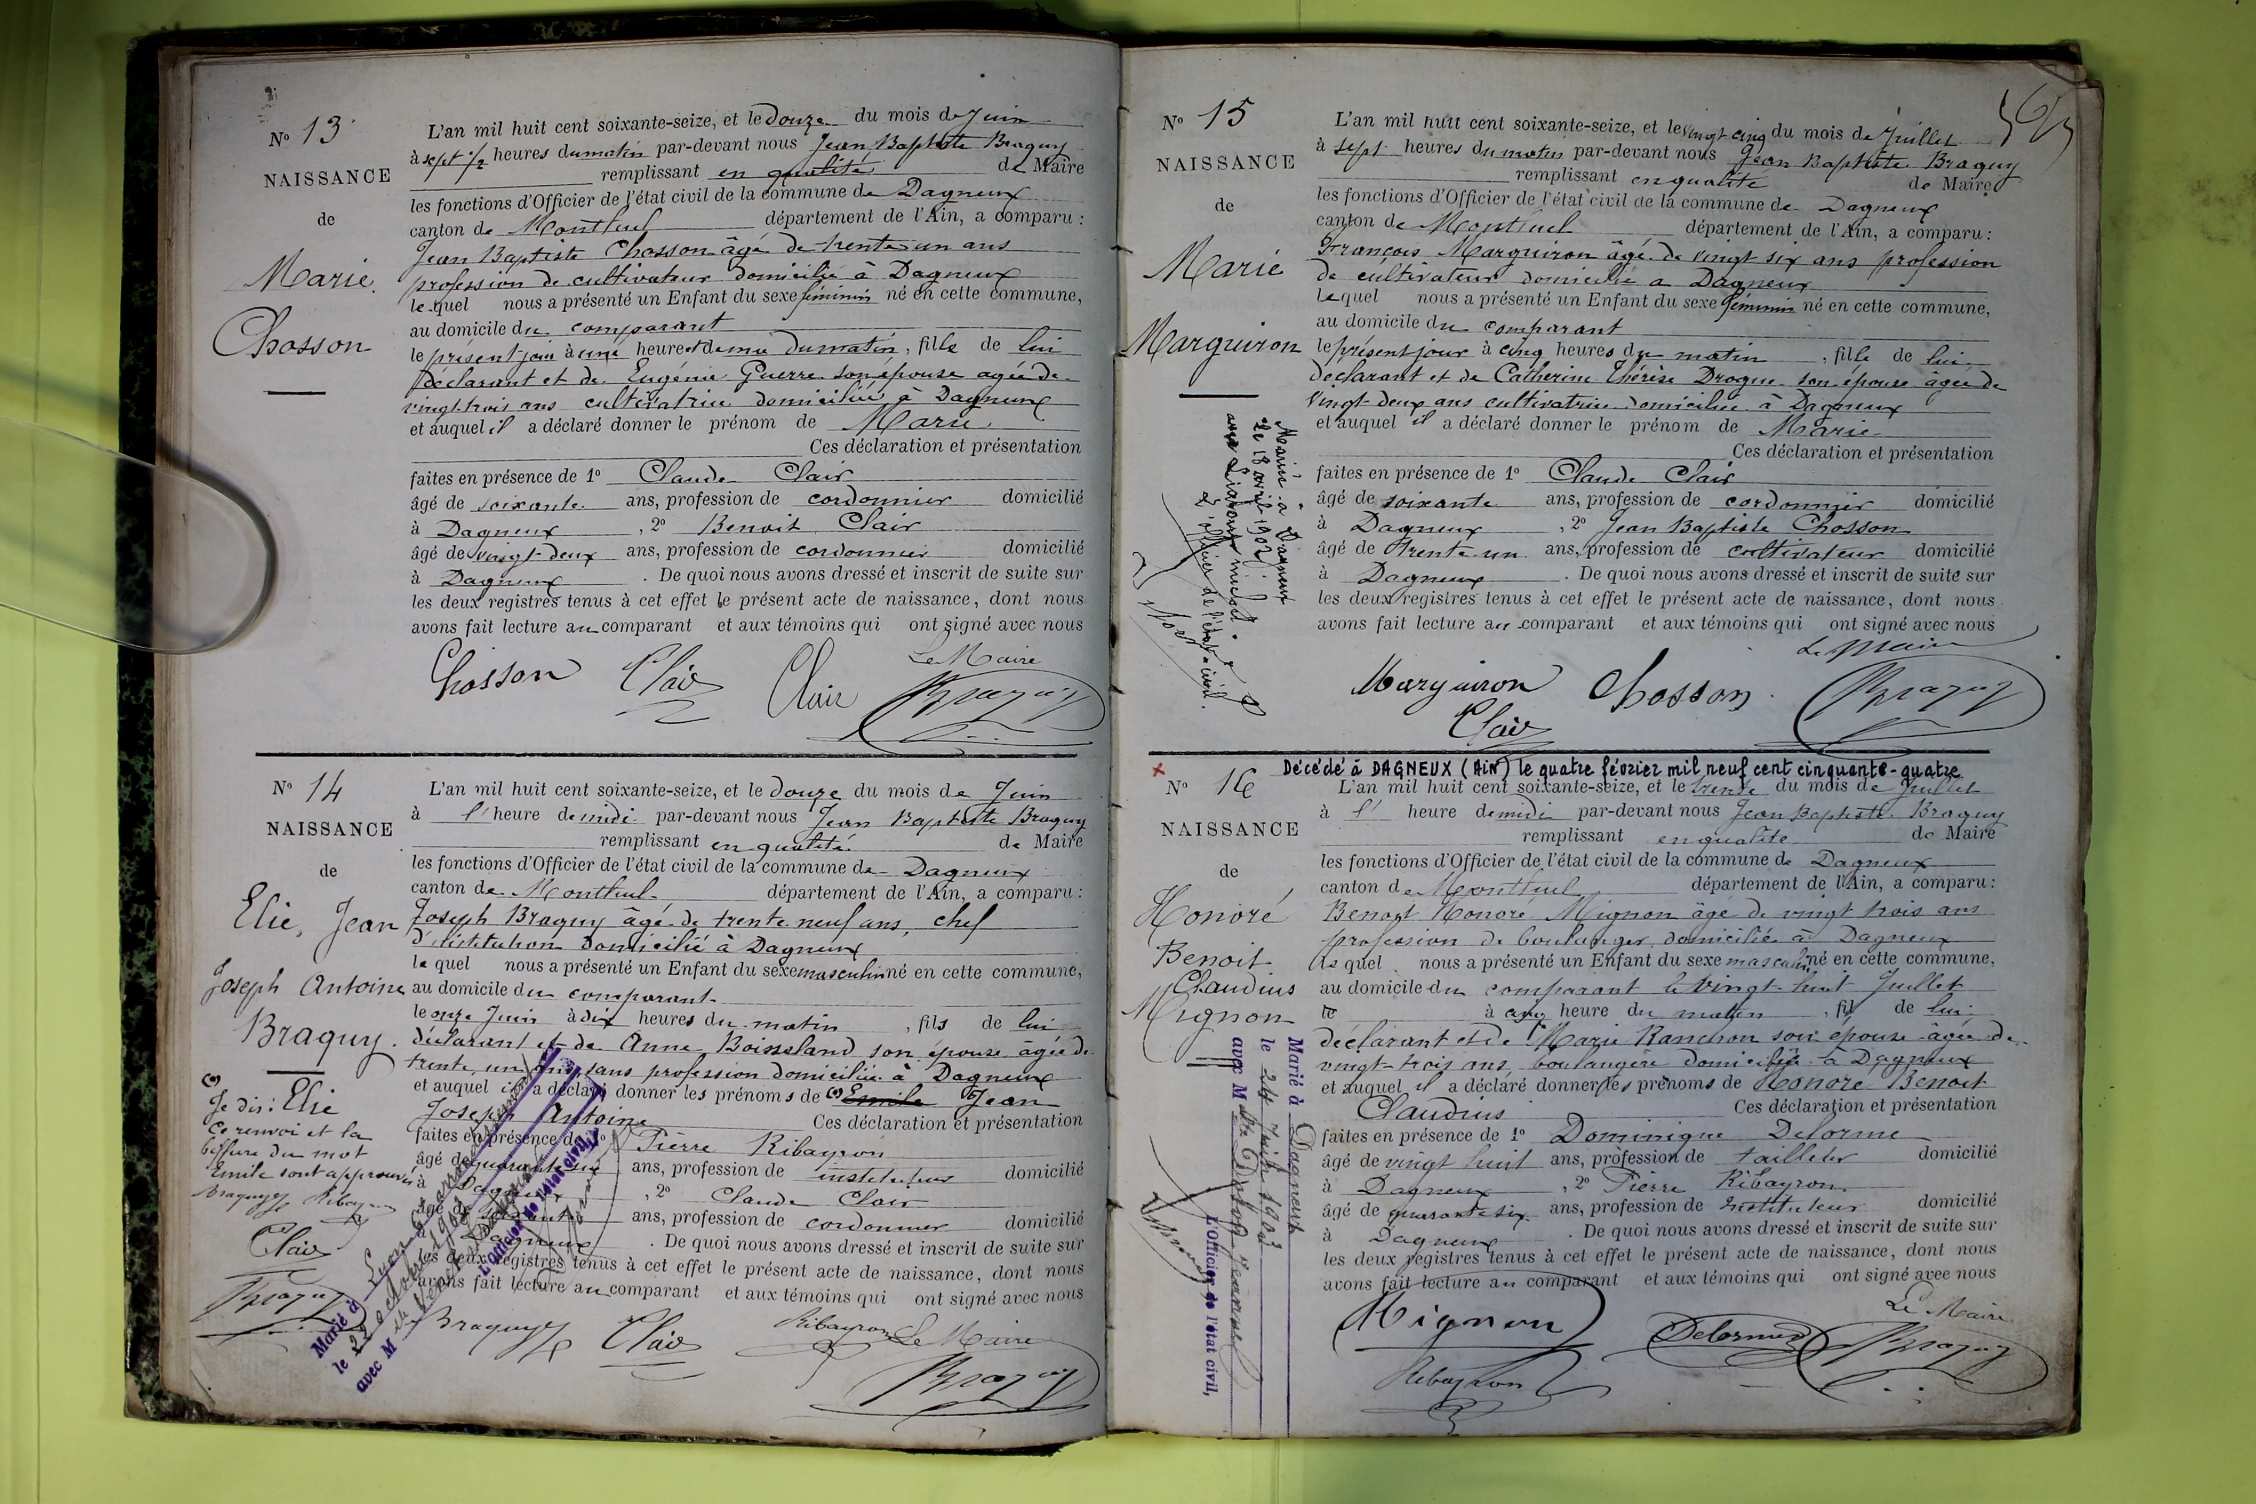 N° 13
NAISSANCE
de
Marie
Chosson
L'an mil huit cent soixante-seize, et le douze du mois de Juin
à sept ½ heures du matin par-devant nous Jean Baptiste Braguy
remplissant en qualité de Maire
les fonctions d'Officier de l'état civil de la commune de Dagneux
canton de Montluel département de l'Ain, a comparu :
Jean Baptiste Chosson âgé de trente un ans
profession de cultivateur domicilié à Dagneux
lequel nous a présenté un Enfant du sexe féminin né en cette commune,
au domicile du comparant
le présent jour à une heure et demie du matin, fille de lui
déclarant et de Eugénie Guerre son épouse agée de
vingt trois ans cultivatrice domiciliée à Dagneux
et auquel il a déclaré donner le prénom de Marie
Ces déclaration et présentation
faites en présence de 1° Claude Clair
âgé de soixante ans, profession de cordonnier domicilié
à Dagneux, 2° Benoit Clair
âgé de vingt-deux ans, profession de cordonnier domicilié
à Dagneux. De quoi nous avons dressé et inscrit de suite sur
les deux registres tenus à cet effet le présent acte de naissance, dont nous
avons fait lecture au comparant et aux témoins qui ont signé avec nous
Le Maire
Chosson Clair Clair Braguy
N° 14
NAISSANCE
de
Elie, Jean
Joseph Antoine
Braguy.
(1)
Je dis : Elie
Ce renvoi et la
biffure du mot
Emile sont approuvés
Braguy Ribayron
Clair
Braguy
L'an mil huit cent soixante-seize, et le douze du mois de Juin
à l' heure de midi par-devant nous Jean Baptiste Braguy
remplissant en qualité de Maire
les fonctions d'Officier de l'état civil de la commune de Dagneux
canton de Montluel département de l'Ain, a comparu :
Joseph Braguy âgé de trente neuf ans, chef
d'institution domicilié à Dagneux
lequel nous a présenté un Enfant du sexe masculin né en cette commune,
au domicile du comparant
le onze Juin à dix heures du matin, fils de lui
déclarant et de Anne son épouse âgée de
trente un ans, sans profession domiciliée à Dagneux
et auquel il a déclaré donner les prénoms de (1) Emile Jean
Joseph Antoine Ces déclaration et présentation
faites en présence de 1° Pierre Ribayron
âgé de quarante six ans, profession de instituteur domicilié
à Dagneux, 2° Claude Clair
âgé de soixante ans, profession de cordonnier domicilié
à Dagneux. De quoi nous avons dressé et inscrit de suite sur
les deux registres tenus à cet effet le présent acte de naissance, dont nous
avons fait lecture au comparant et aux témoins qui ont signé avec nous
Braguy Clair Ribayron Le Maire
Braguy
Marié à Lyon
le 22 octobre
avec M
L'officier de l'état civil,
N° 15
NAISSANCE
de
Marie
Marguiron
Mariée à Dagneux
Le 18 avril 1902
avec
L'officier de l'état-civil.
L'an mil huit cent soixante-seize, et le vingt cinq du mois de Juillet
à sept heures du matin par-devant nous Jean Baptiste Braguy
remplissant en qualité de Maire
les fonctions d'Officier de l'état civil de la commune de Dagneux
canton de Montluel département de l'Ain, a comparu :
François Marguiron âgé de vingt six ans profession
de cultivateur domicilié a Dagneux
lequel nous a présenté un Enfant du sexe féminin né en cette commune,
au domicile du comparant
le présent jour à cinq heures du matin, fille de lui
déclarant et de Catherine Thérèse Drogue son épouse âgée de
vingt-deux ans cultivatrice domiciliée à Dagneux
et auquel il a déclaré donner le prénom de Marie
Ces déclaration et présentation
faites en présence de 1° Claude Clair
âgé de soixante ans, profession de cordonnier domicilié
à Dagneux, 2° Jean Baptiste Chosson
âgé de trente un ans, profession de cultivateur domicilié
à Dagneux. De quoi nous avons dressé et inscrit de suite sur
les deux registres tenus à cet effet le présent acte de naissance, dont nous
avons fait lecture au comparant et aux témoins qui ont signé avec nous
Le Maire
Marguiron Chosson Braguy
Clair
Décédé à DAGNEUX (Ain) le quatre février mil neuf cent cinquante-quatre
N° 16
NAISSANCE
de
Honoré
Benoit
Claudius
Mignon
Marié à Dagneux
le 24 Juin 1903
avec M lle
L'Officier de l'état civil,
L'an mil huit cent soixante-seize, et le trente du mois de Juillet
à l' heure de midi par-devant nous Jean Baptiste Braguy
remplissant en qualité de Maire
les fonctions d'Officier de l'état civil de la commune de Dagneux
canton de Montluel département de l'Ain, a comparu :
Benoit Honoré Mignon âgé de vingt trois ans
profession de boulanger domicilié à Dagneux
lequel nous a présenté un Enfant du sexe masculin né en cette commune,
au domicile du comparant le vingt-huit Juillet
le à cinq heure du matin, fils de lui
déclarant et de Marie Ranchon son épouse âgée de
vingt-trois ans, boulangère domiciliée à Dagneux
et auquel il a déclaré donner les prénoms de Honoré Benoit
Claudius Ces déclaration et présentation
faites en présence de 1° Dominique Delorme
âgé de vingt huit ans, profession de tailleur domicilié
à Dagneux, 2° Pierre Ribayron
âgé de quarante six ans, profession de Instituteur domicilié
à Dagneux. De quoi nous avons dressé et inscrit de suite sur
les deux registres tenus à cet effet le présent acte de naissance, dont nous
avons fait lecture au comparant et aux témoins qui ont signé avec nous
Le Maire
Mignon Delorme Braguy
Ribayron